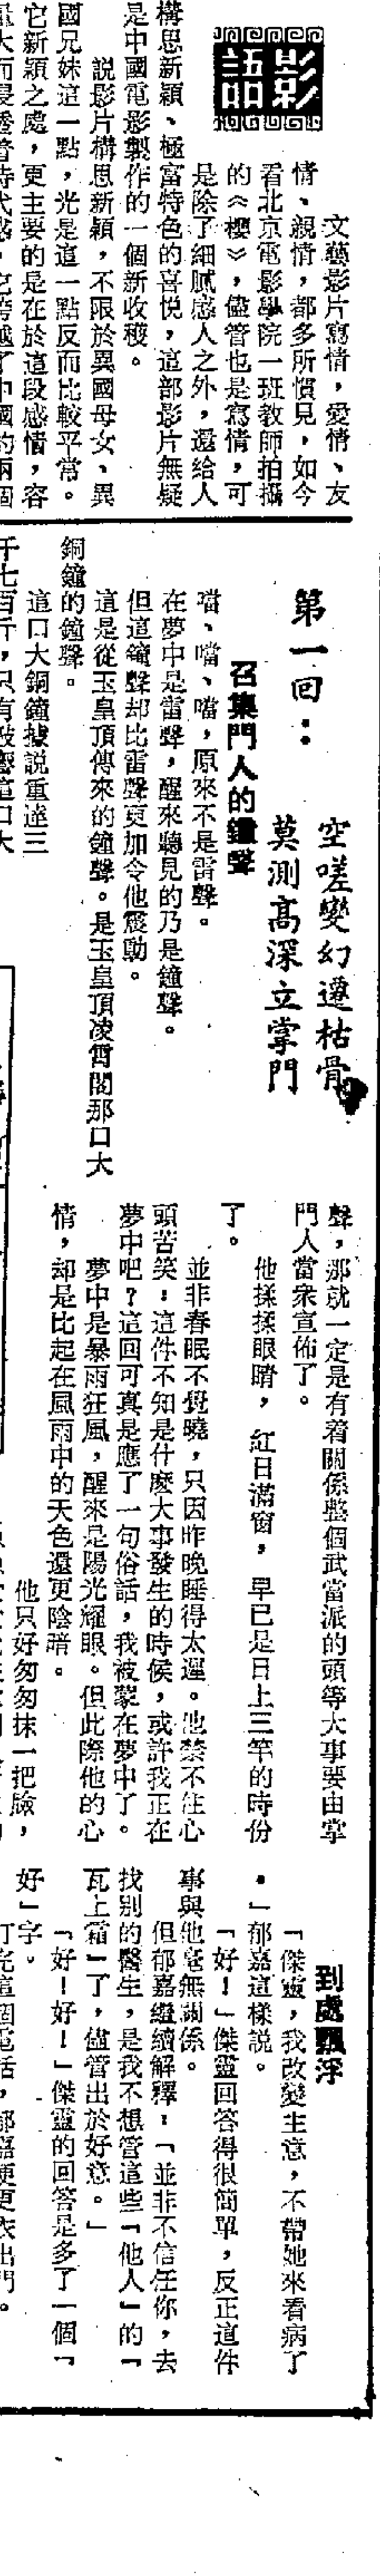 影語
文藝影片寫情，愛情、友
情、親情，都多所慣見，如今
看北京電影學院一班教師拍攝
的《櫻》，儘管也是寫情，可
是除了細膩感人之外，還給人
構思新穎、極富特色的喜悦，這部影片無疑
是中國電影製作的一個新收穫。
説影片構思新穎，不限於異國母女、異
國兄妹這一點，光是這一點反而比較平常。
它新穎之處，更主要的是在於這段感情，容
第一回：
空嗟變幻遷枯骨
莫測高深立掌門
召集門人的鐘聲
噹、噹、噹，原來不是雷聲。
在夢中是雷聲，醒來聽見的乃是鐘聲。
但這鐘聲却比雷聲更加令他震動。
這是從玉皇頂傳來的鐘聲。是玉皇頂凌霄閣那口大
銅鐘的鐘聲。
這口大銅鐘據説重達三
千七百斤，只有敲響這口大
聲，那就一定是有着關係整個武當派的頭等大事要由掌
門人當衆宣佈了。
他揉揉眼睛，紅日滿窗，早已是日上三竿的時份
了。
並非春眠不覺曉，只因昨晚睡得太遲。他禁不住心
頭苦笑：這件不知是什麼大事發生的時候，或許我正在
夢中吧？這回可真是應了一句俗話，我被蒙在夢中了。
夢中是暴雨狂風，醒來是陽光耀眼。但此際他的心
情，却是比起在風雨中的天色還更陰暗。
他只好匆匆抹一把臉，
到處飄浮
「傑靈，我改變生意，不帶她來看病了
。」郁嘉這樣説。
「好！」傑靈回答得很簡單，反正這件
事與他毫無關係。
但郁嘉繼續解釋：「並非不信任你，去
找别的醫生，是我不想管這些「他人」的「
瓦上霜」了，儘管出於好意。」
「好！好！」傑靈的回答是多了一個「
好」字。
打完這個電話，郁嘉便更衣出門。